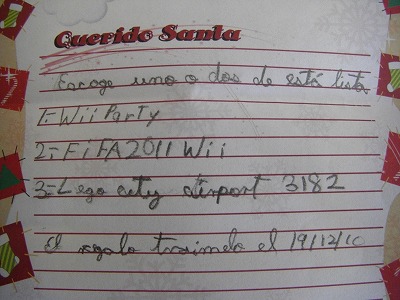 Querido Santa
Escoge uno o dos de está lista
1:- Wii Party
2:- FiFA 2011 Wii
3:- Lego city airport 3182
El regalo traimelo el 19/12/10